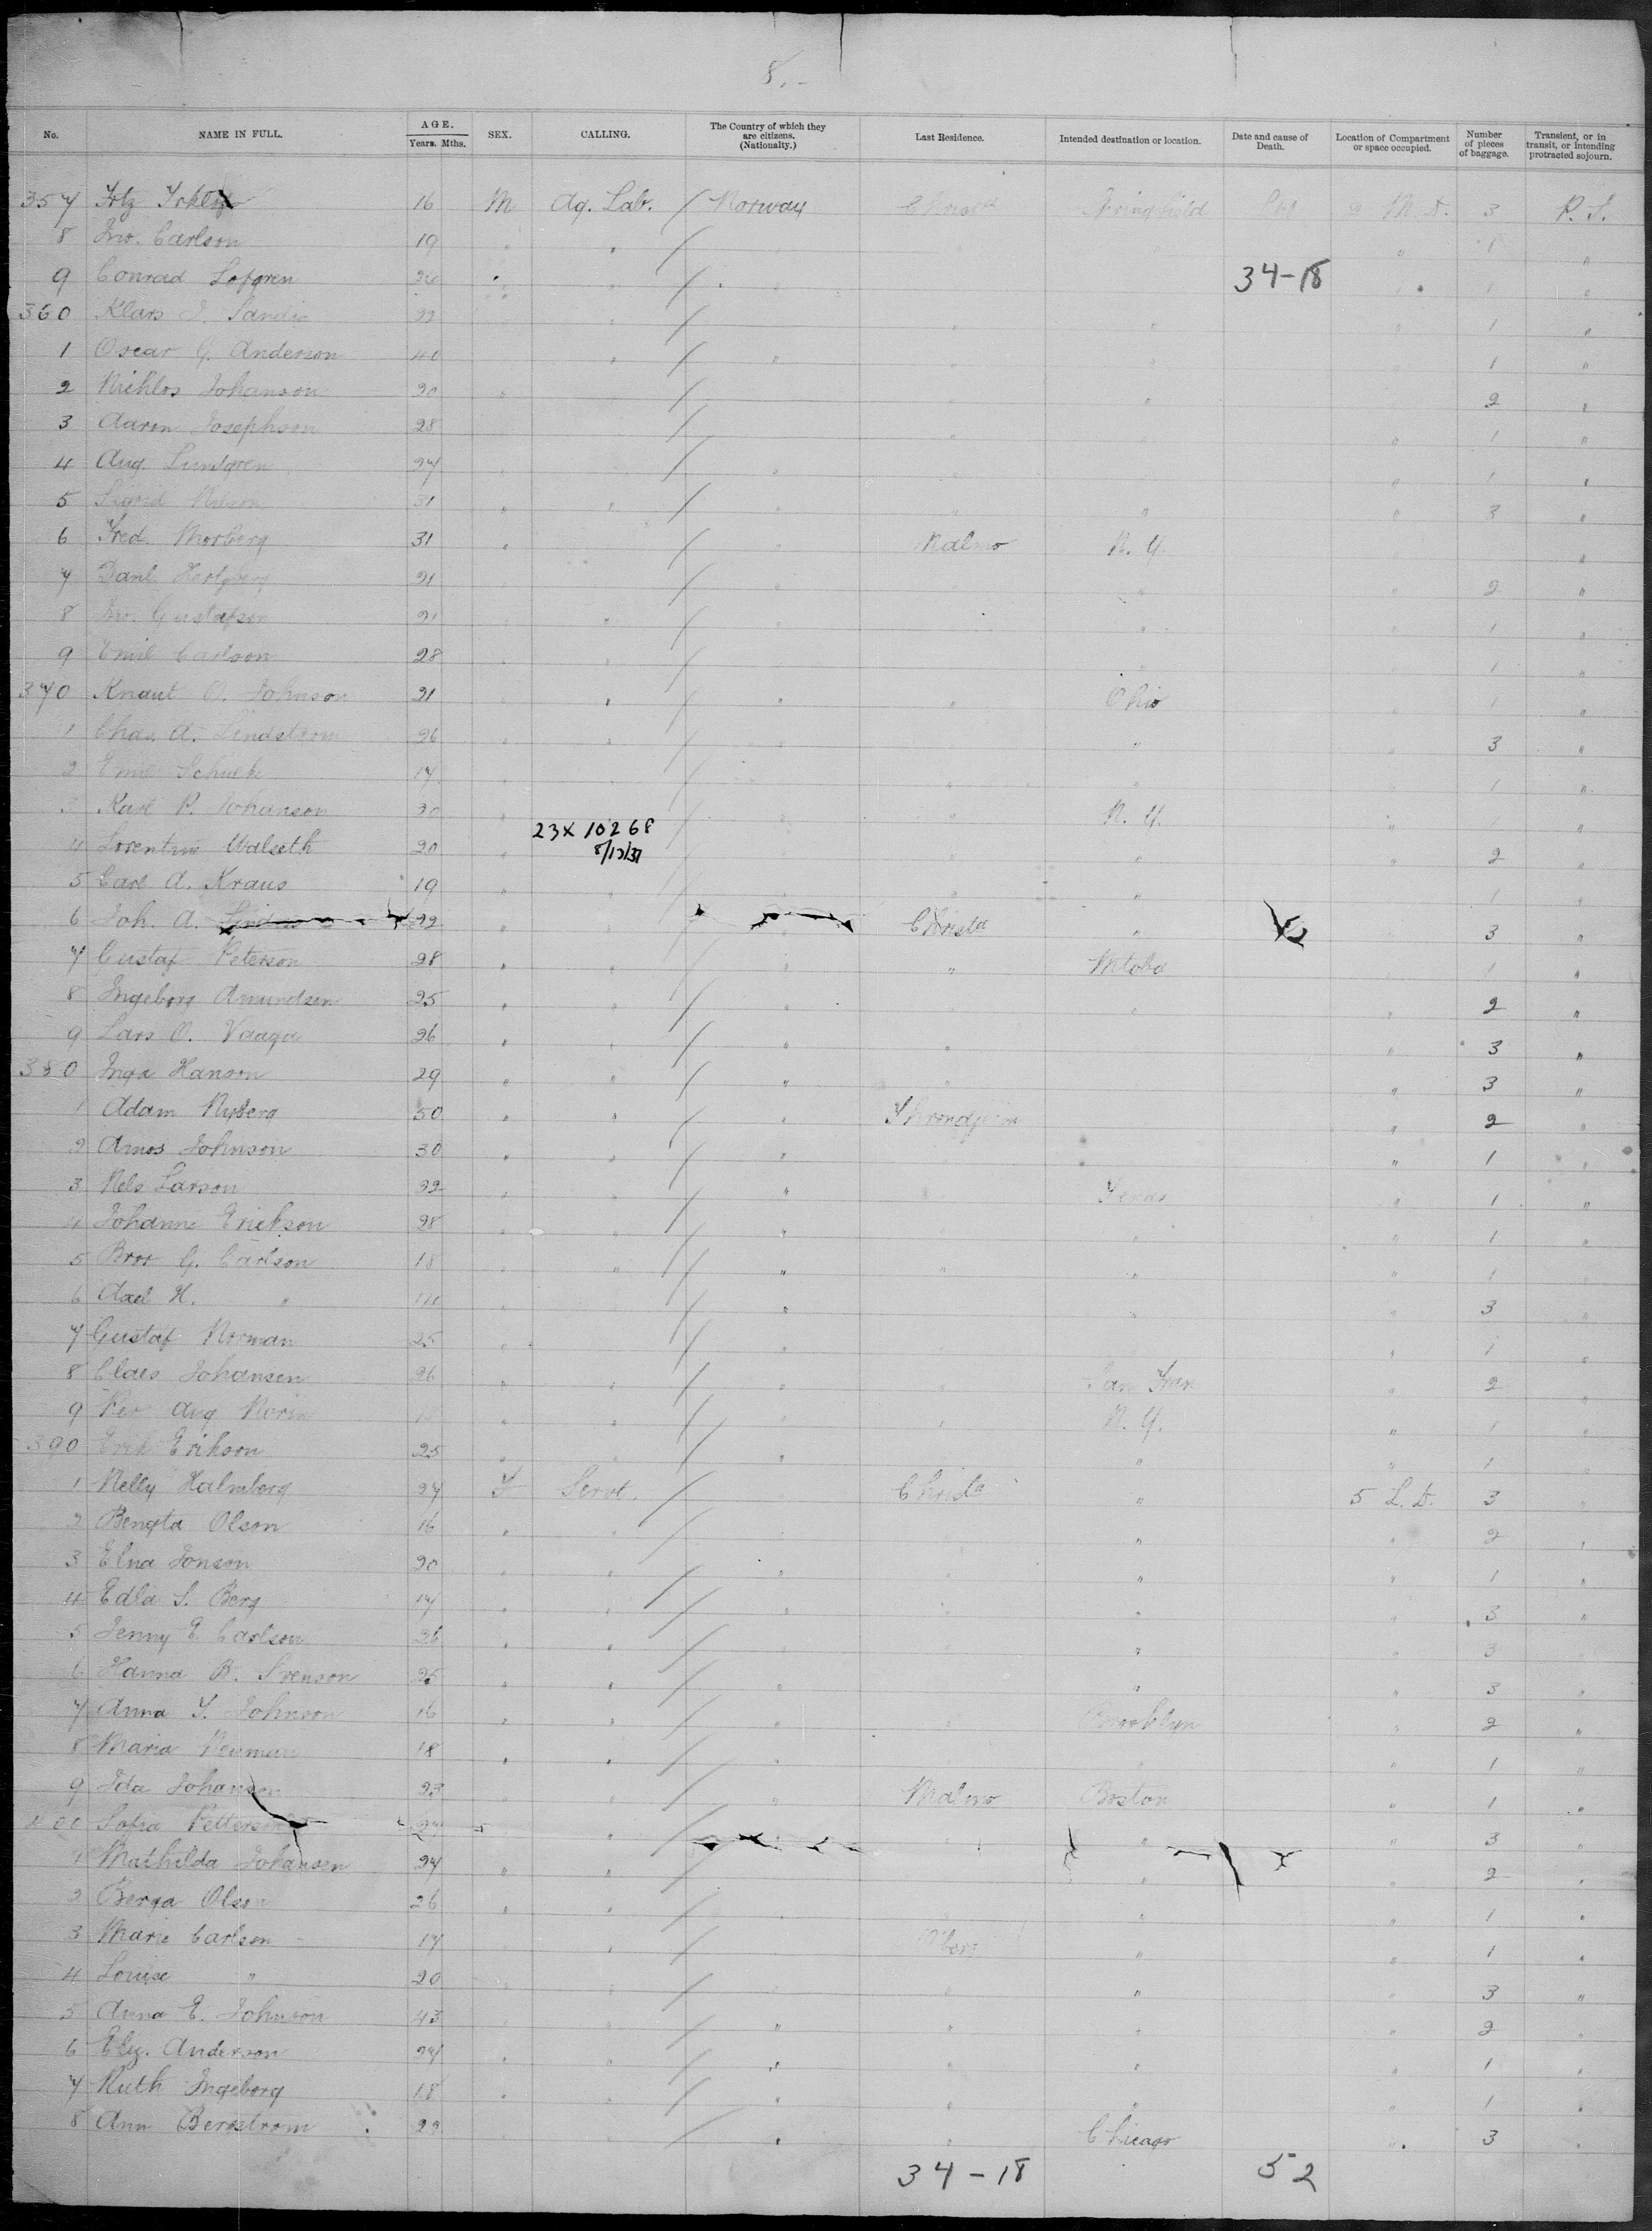 8.-
No. NAME IN FULL. AGE. Years. Mths. SEX. CALLING. The Country of which they are citizens. (Nationalty.) Last Residence. Intended destination or location. Date and cause of Death. Location of Compartment or space occupied. Number of pieces of baggage. Transient, or in transit, or intending protracted sojourn.
357 16 M Ag. Lab. / Norway Springfield M. D. 3 P. S.
8 Jno. Carlson 19 " / " 1 "
9 Conrad Lofgren 26 " / " 34-18 " 1 "
360 Klars J. Sandin 22 " / " " " 1 "
1 Oscar G. Anderson 40 " / " 1 "
2 Nichlos Johanson 20 " / " 2 "
3 Aaron Josephson 28 / " " 1 "
4 Aug. Lundgren 27 / " " 1 "
5 Sigrid 31 " " / " " " " 3 "
6 Fred. Morberg 31 " / " Malmo N. Y. "
7 Danl. Hertzberg 21 / " " " 2 "
8 Jno. Gustafson 21 " / " " 1 "
9 Emil Carlson 28 / " 1 "
370 Knaut O. Johnson 21 " / " " Ohio 1 "
1 Chas. A. Lindstrom 26 " " / " 3 "
2 Emil 17 " / " " 1 "
3 Karl P. Johanson 30 " / " " N. Y. " 1 "
23X 10268
8/13/37
4 Lorentine Walseth 20 " / " " " 2 "
5 Carl A. Kraus 19 " / " " 1 "
6 Joh. A. 22 " / Christa " 3 "
7 Gustaf Peterson 28 " " / " " Mtoba 1 "
8 Ingeborg Amundsen 25 " " / " " " 2 "
9 Lars O. Vaaga 26 " / " " " 3 "
380 Inga Hanson 29 " " / " " " 3 "
1 Adam Nyberg 50 " " / " Throndjeim " 2 "
2 Amos Johnson 30 " " / " " 1 "
3 Nels Larson 32 " " / " " 1 "
4 Johanne Erickson 28 " / " " " 1 "
5 Bror G. Carlson 18 " " / " " " " 1 "
6 Axel H. " " / " " " 3 "
7 Gustaf Norman 25 " / " " 1 "
8 Claes Johansen 26 " " / " San Fran " 2 "
9 Per Aug Norin " " / " N. Y. " 1 "
390 Erik Erikson 25 " " / " " " 1 "
1 Nelly Halmberg 27 F Servt. / Christa " 5 L. D. 3 "
2 Bengta Olson 16 " / " " 2 "
3 Elna Jonson 20 " / " " " 1 "
4 Edla S. Berg 17 " / " " 3 "
5 Jenny E. Carlson 26 " " / " 3 "
6 Hanna B. Svenson 25 " " / " " " 3 "
7 Anna T. Johnson 16 " " / " Brooklyn " 2 "
8 Maria Neuman 18 " " / " " 1 "
9 Ida Johanson 23 " / " Malmo Boston " 1 "
400 Sofia 27 " / " " 3 "
1 Mathilda Johansen 24 " " / " 2 "
2 Berga Olson 26 " " / " " 1 "
3 Marie Carlson 17 " / " " 1 "
4 Louise " 20 / " " 3 "
5 Anna E. Johnson 43 " / " " " " 2 "
6 Eliz. Anderson 24 " " / " " " 1 "
7 Ruth Ingeborg 18 " / " " " 1 "
8 Ann Bergstrom 29 / " " Chicago " 3 "
34-18 52